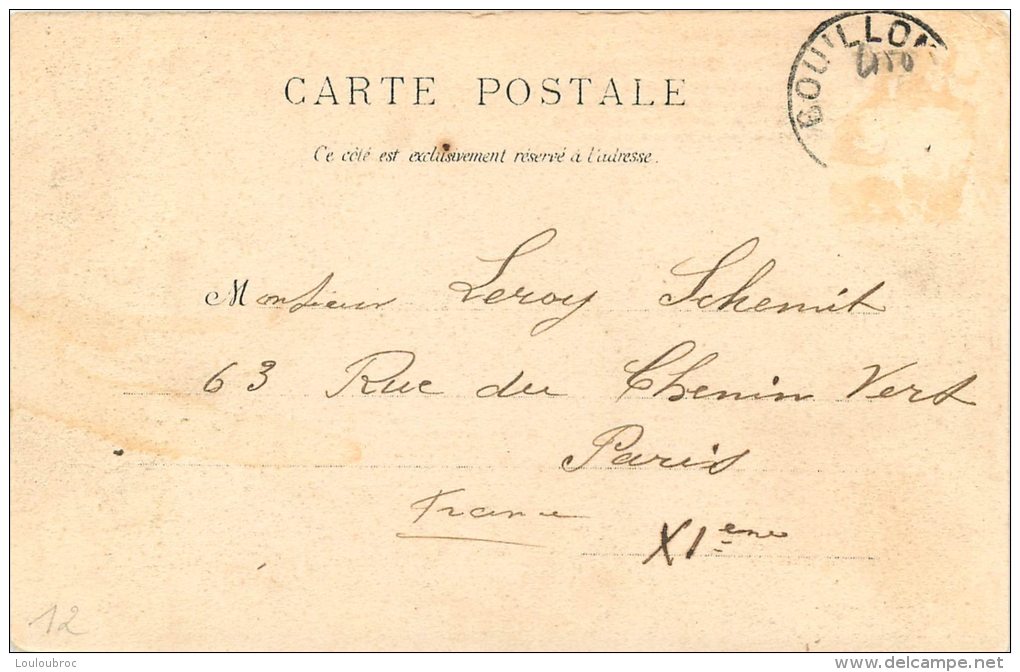 BOUILLON
CARTE POSTALE
Ce côté est exclusivement réservé à l'adresse.
Monsieur Leroy Schemit
63 Rue du Chemin Vert
Paris
France
XIeme
12
Louloubroc
www.delcampe.net